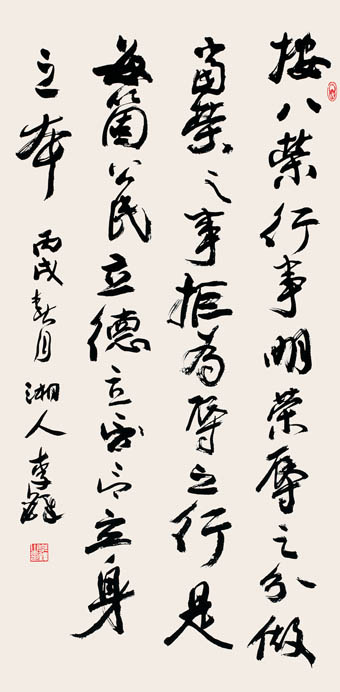 按八荣行事明荣辱之分做
当荣之事拒为辱之行是
每个公民立德立功立言立身
之本
丙戌春月湘人李